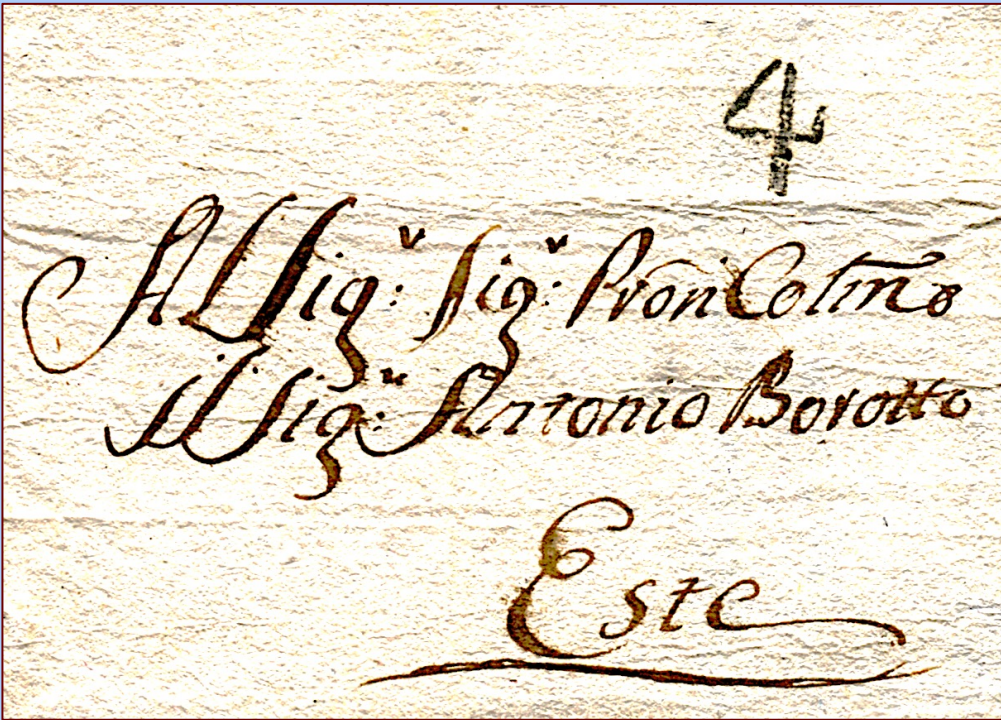 4
Al Sig:r Sig:r Pron Colmo
Il Sig:r Antonio Borotto
Este